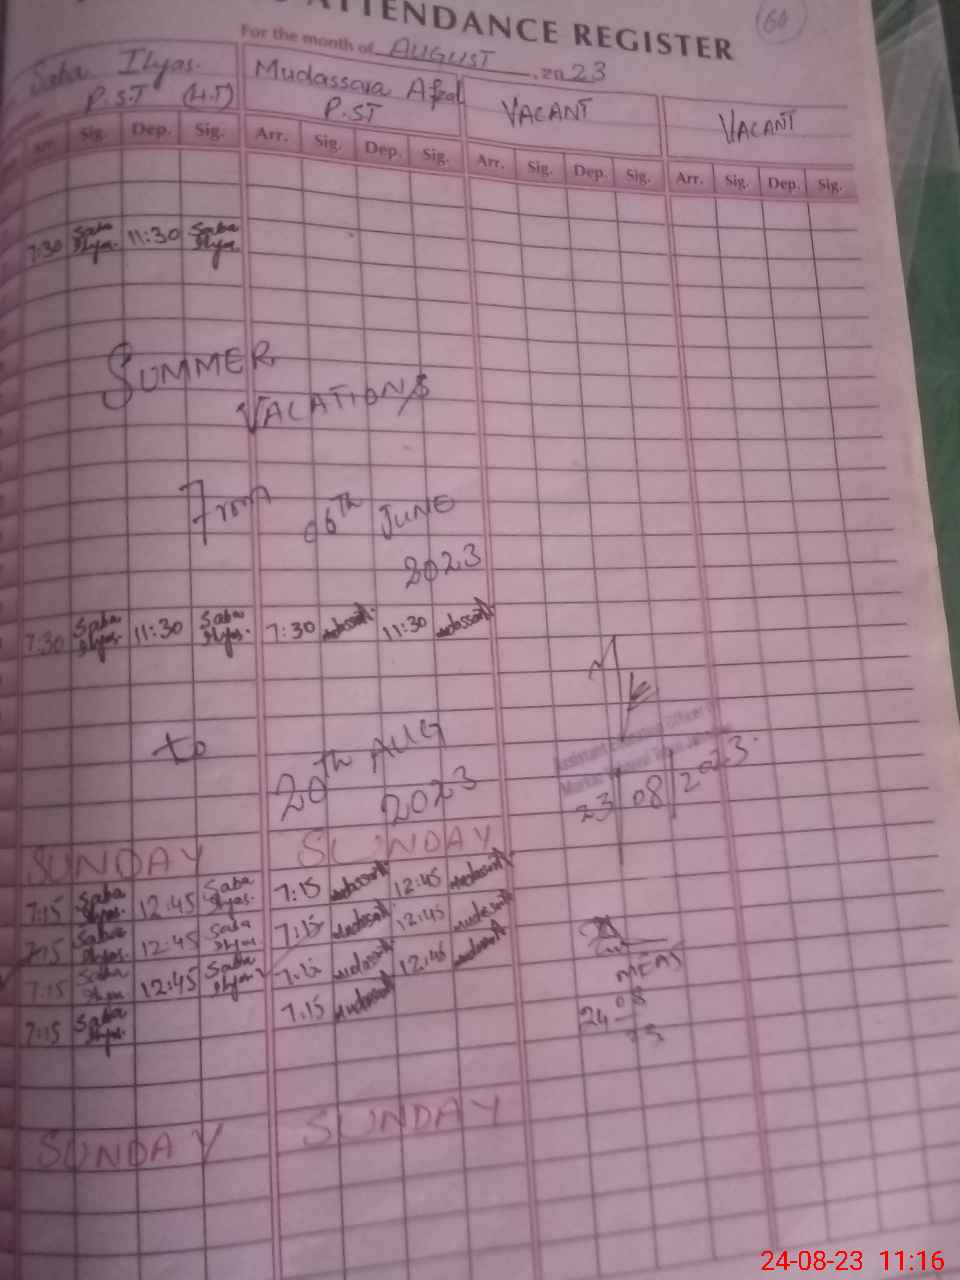 ATTENDANCE REGISTER
66
For the month of AUGUST, 2023
Saba Ilyas. Mudassara Afzal VACANT VACANT
P.S.T (H.T) P.ST
Arr. Sig. Dep. Sig. Arr. Sig. Dep. Sig. Arr. Sig. Dep. Sig. Arr. Sig. Dep. Sig.
7:30 Saba Ilyas. 11:30 Saba Ilyas.
SUMMER
VACATIONS
From 06th JUNE
2023
7:30 Saba Ilyas. 11:30 Saba Ilyas. 7:30 11:30
to 20th AUG
2023
Assistant Education Officer
23/08/2023.
SUNDAY SUNDAY
7:15 Saba Ilyas. 12:45 Saba Ilyas. 7:15 12:45
7:15 Saba Ilyas. 12:45 Saba Ilyas 7:15 12:45
7:15 Saba Ilyas 12:45 Saba Ilyas 7:15 12:45
7:15 Saba Ilyas. 7:15
MEAS
24-08
23
SUNDAY SUNDAY
24-08-23 11:16